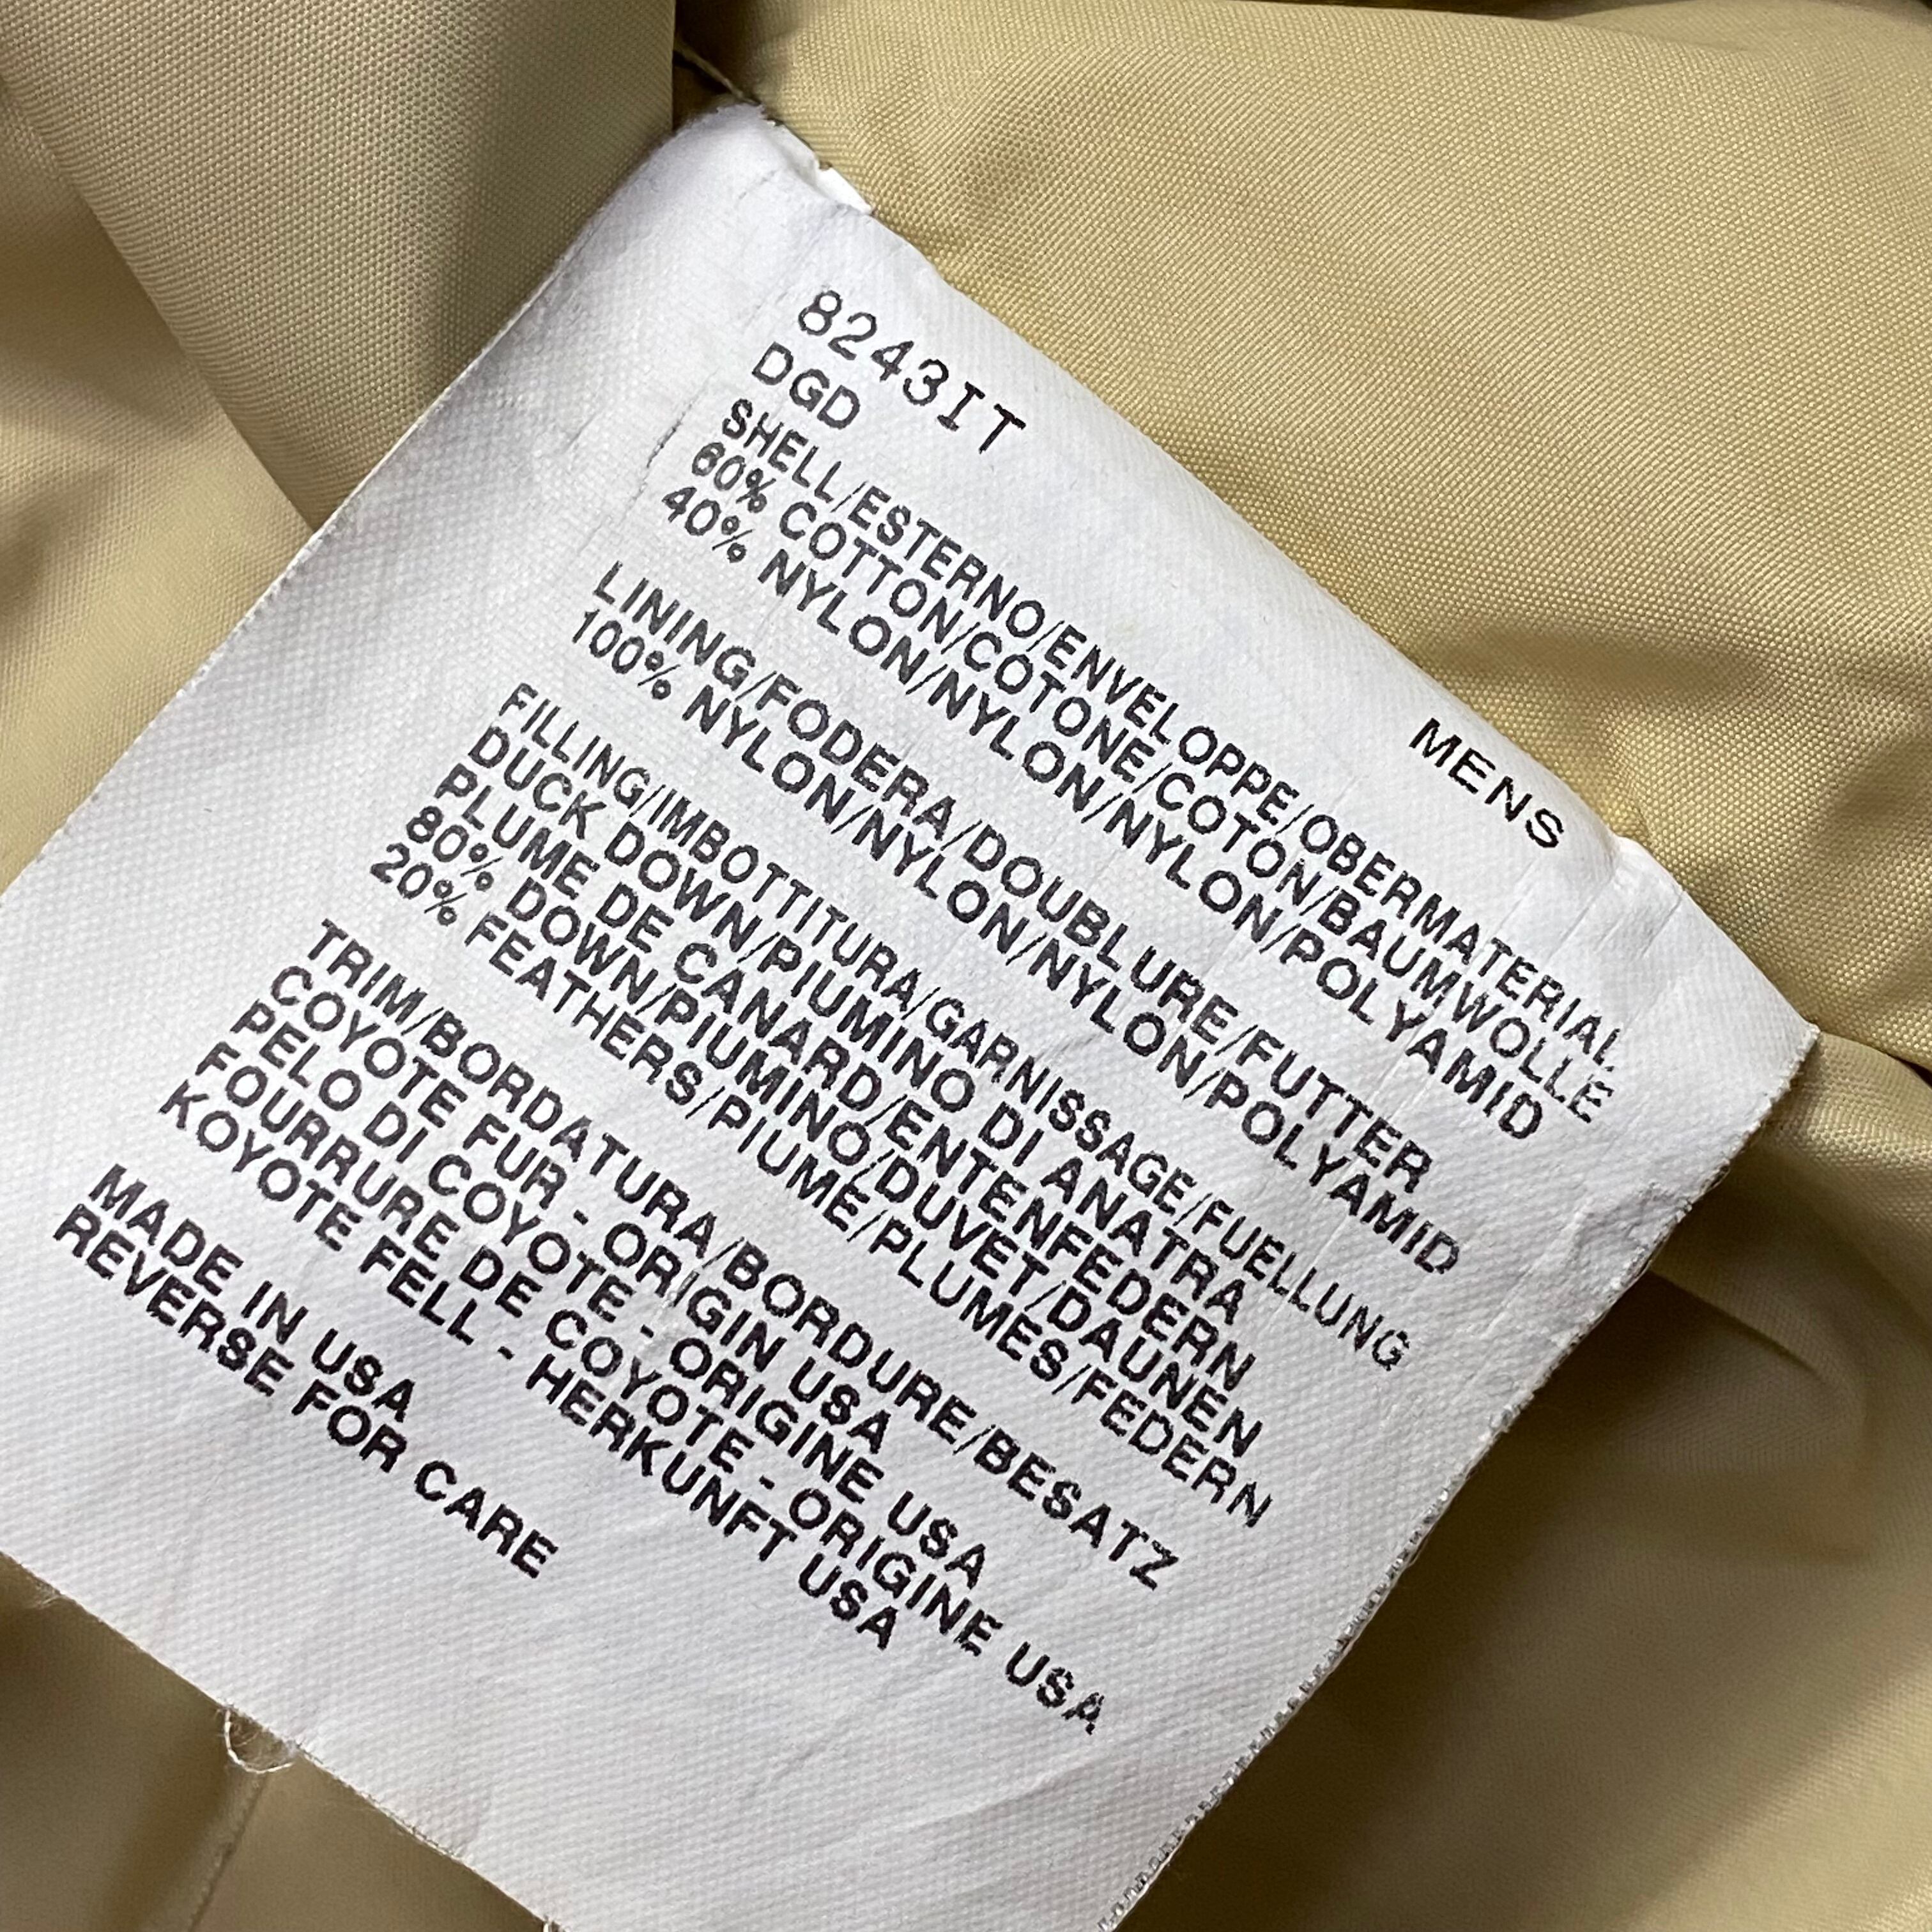 8243IT
DGD MENS
SHELL/ESTERNO/ENVELOPPE/OBERMATERIAL
60% COTTON/COTONE/COTON/BAUMWOLLE
40% NYLON/NYLON/NYLON/POLYAMID
LINING/FODERA/DOUBLURE/FUTTER
100% NYLON/NYLON/NYLON/POLYAMID
FILLING/IMBOTTITURA/GARNISSAGE/FUELLUNG
DUCK DOWN/PIUMINO DI ANATRA
PLUME DE CANARD/ENTENFEDERN
80% DOWN/PIUMINO/DUVET/DAUNEN
20% FEATHERS/PIUME/PLUMES/FEDERN
TRIM/BORDATURA/BORDURE/BESATZ
COYOTE FUR - ORIGIN USA
PELO DI COYOTE - ORIGINE USA
FOURRURE DE COYOTE - ORIGINE USA
KOYOTE FELL - HERKUNFT USA
MADE IN USA
REVERSE FOR CARE